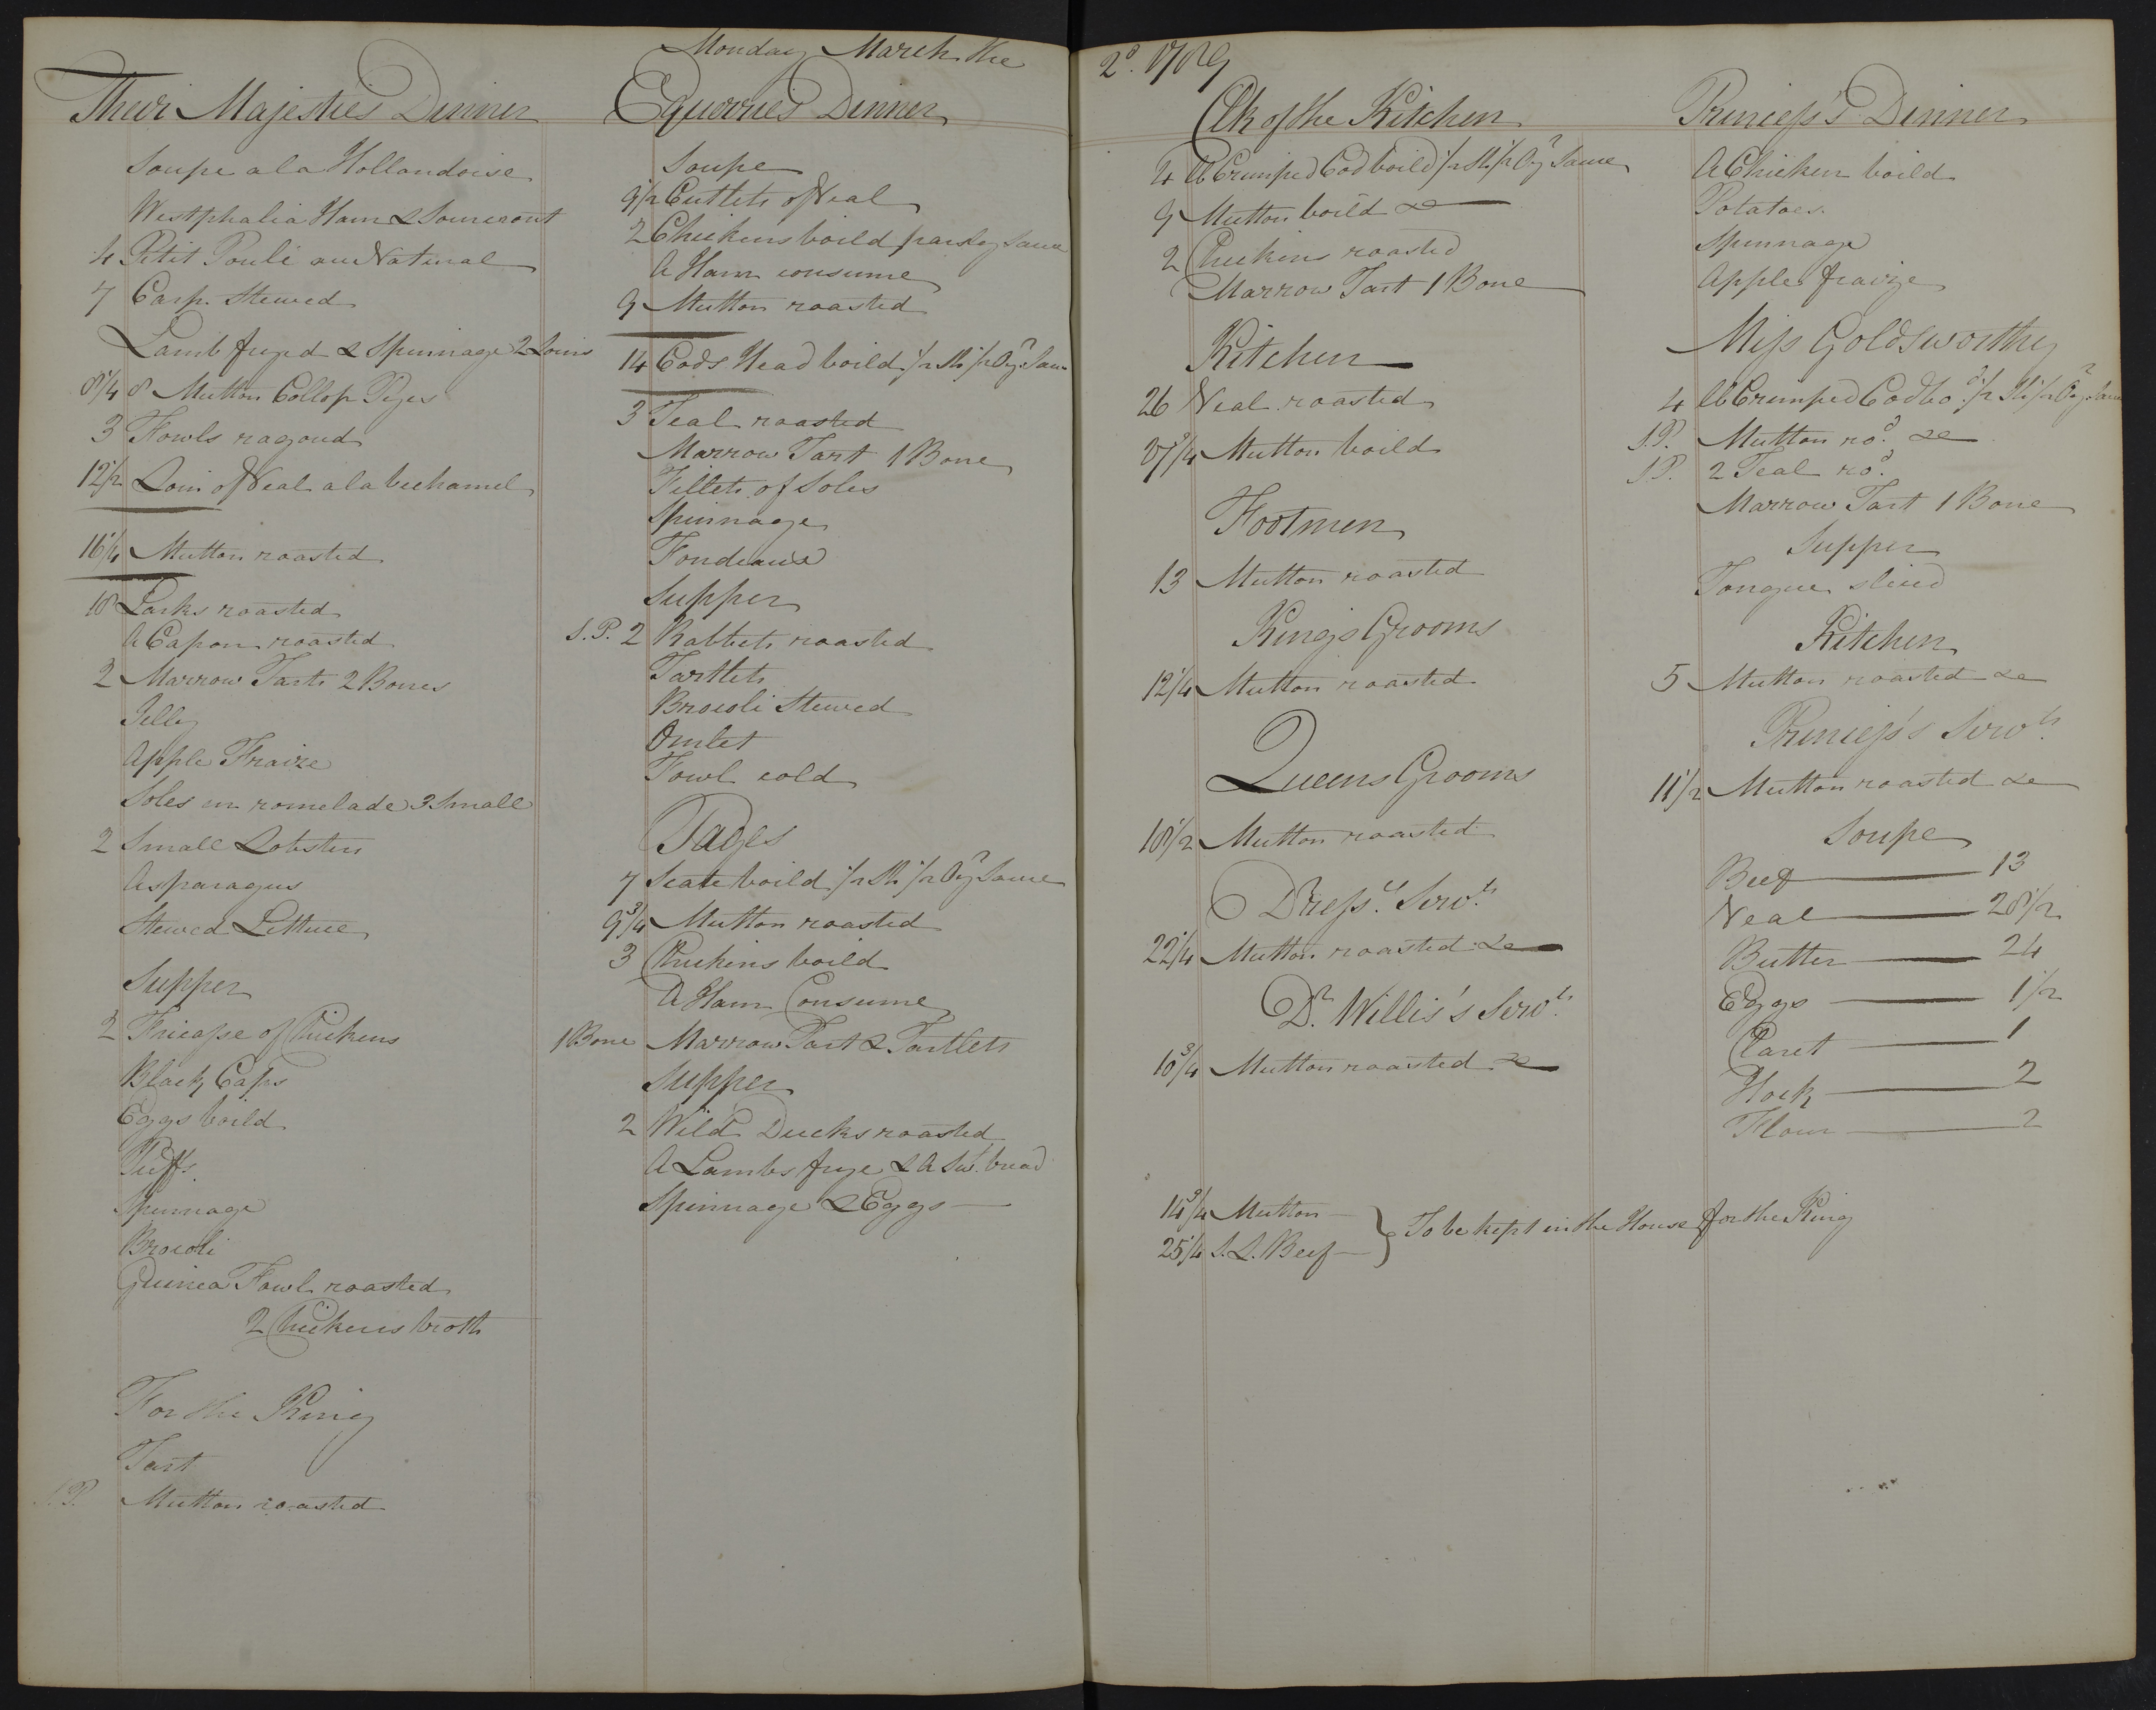 Monday March the 2d. 1789
Their Majesties Dinner
Soupe a la Hollandoise
Westphalia Ham & Sourcrout
4 Petit Poule au Natural
7 Carp Stewed
Lamb fryed & Spinnage 2 Loins
8 1/4 8 Mutton Collop Pyes
3 Fowls ragoud
12 1/2 Loin of Veal a la bechamel
16 1/4 Mutton roasted
18 Larks roasted
A Capon roasted
2 Marrow Tarts 2 Bones
Jelly
Apple Fraize
Soles en romelade 3 Small
2 Small Lobsters
Asparagus
Stewed Lettuce
Supper
2 Fricasse of Chickens
Black Caps
Eggs boild
Puffs
Spinnage
Brocoli
Guinea Fowl roasted
2 Chickens broth
For the King
Tart
S.P. Mutton roasted
Equerries Dinner
Soupe
9 1/2 Cutlets of Veal
2 Chickens boild parsley Sauce
A Ham consume
9 Mutton roasted
14 Cods Head boild 1/2 Sh 1/2 Oyr Sau
3 Teal roasted
Marrow Tart 1 Bone
Fillets of Soles
Spinnage
Fondeaux
Supper
S.P. 2 Rabbets roasted
Tartlets
Brocoli Stewed
Omlet
Fowl cold
Pages
7 Scate boild 1/2 Sh 1/2 Oyr Sauce
9 3/4 Mutton roasted
3 Chickens boild
A Ham Consume
1 Bone Marrow Tart & Tartlets
Supper
2 Wild Ducks roasted
A Lambs frye & A Sw. bread
Spinnage & Eggs
Clk of the Kitchen
4 lb Crimped Cod boild 1/2 Sh 1/2 Oyr Sauce
9 Mutton boild &c
2 Chickens roasted
Marrow Tart 1 Bone
Kitchen
26 Veal roasted
Mutton boild
Footmen
13 Mutton roasted
Kings Grooms
12 1/4 Mutton roasted
Queens Grooms
10 1/2 Mutton roasted
Dressrs Servts
22 1/4 Mutton roasted &c
Dr. Willis's Servts
10 3/4 Mutton roasted &c
14 3/4 Mutton
25 1/4 S.L. Beef
To be kept in the House for the King
Princess's Dinner
A Chicken boild
Potatoes
Spinnage
Apple fraize
Miss Goldsworthy
4 lb Crimped Cod bod 1/2 Sh 1/2 Oyr Sauce
S.P. Mutton rod. &c
S.P. 2 Teal rod.
Marrow Tart 1 Bone
Supper
Tongue sliced
Kitchen
5 Mutton roasted &c
Princess's Servts
11 1/2 Mutton roasted &c
Soupe
Beef 13
Veal 28 1/2
Butter 24
Eggs 1 1/2
Claret 1
Hock 2
Flour 2